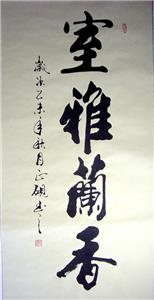 室雅蘭香
歲次乙未年秋月正硯書之